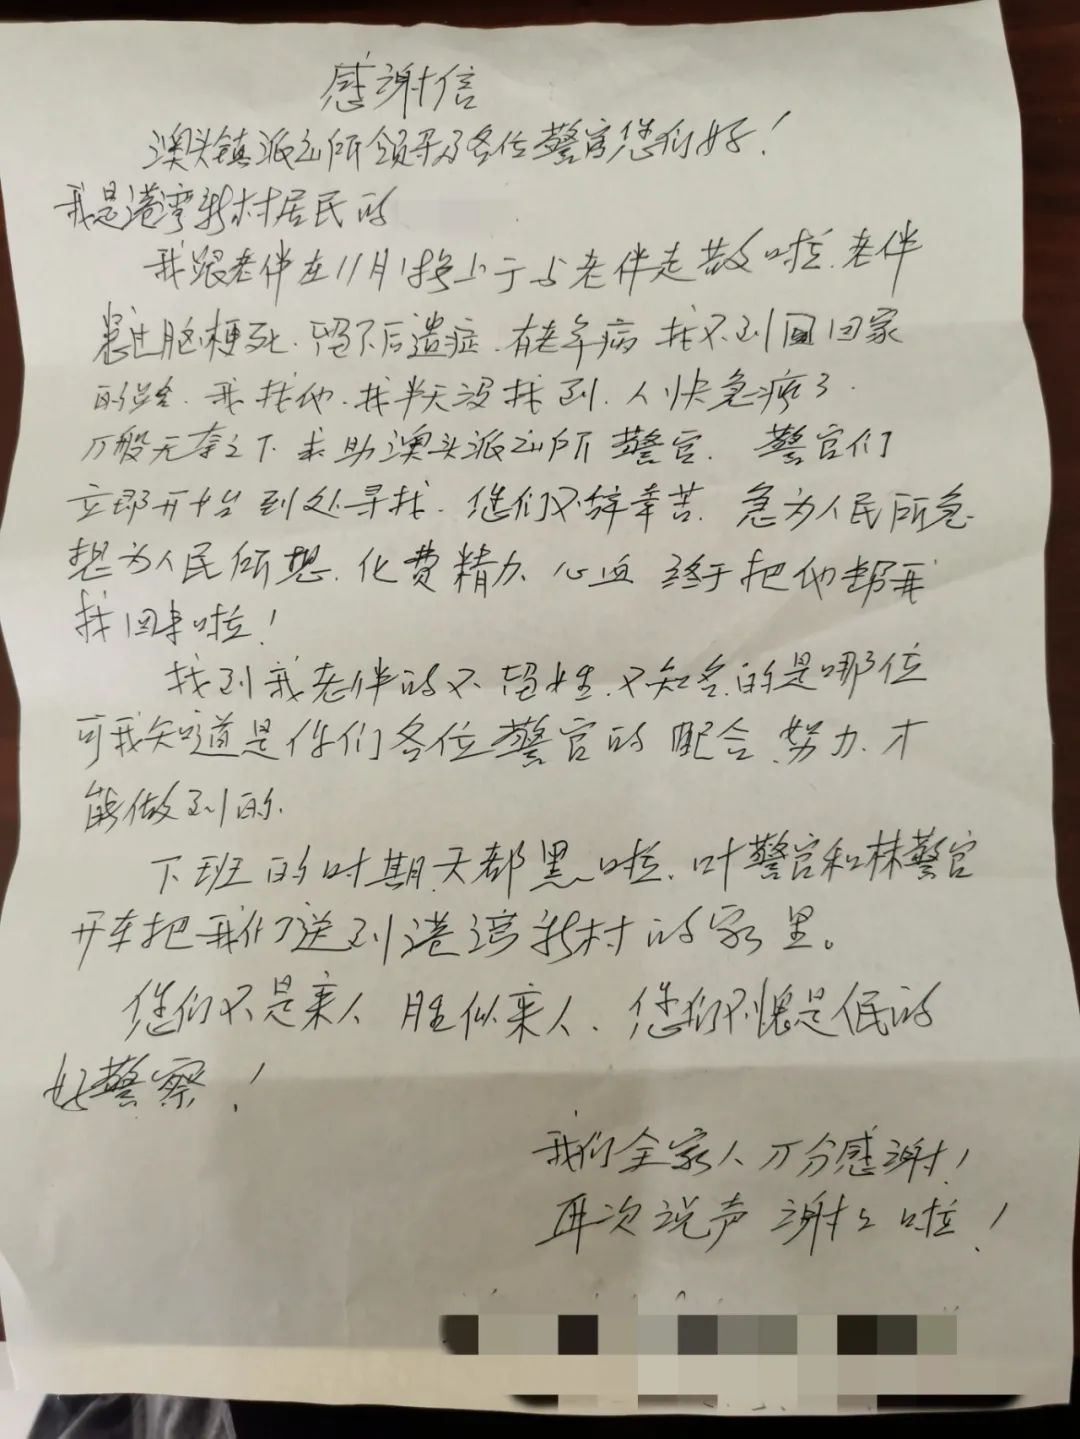 感谢信
澳头镇派出所领导及各位警官您们好！
我是港湾新村居民的
我跟老伴在11月1 与老伴走散啦.老伴
患过脑梗死.留下后遗症.有老年病 找不到回家
的路.我找他.找半天没找到.人快急疯了.
万般无奈之下.求助澳头派出所 警官. 警官们
立即开始到处寻找.您们不辞幸苦.急为人民所急.
想为人民所想.化费精力.心血 终于把他帮我
找回来啦！
找到我老伴的不留姓.不知名.的是哪位
可我知道是你们各位警官的 配合.努力.才
能做到的.
下班的时期.天都黑啦.叶警官和林警官
开车把我们送到港湾新村的家里。
您们不是亲人 胜似亲人.您们不愧是 民的
好警察！
我们全家人万分感谢！
再次说声 谢谢啦！